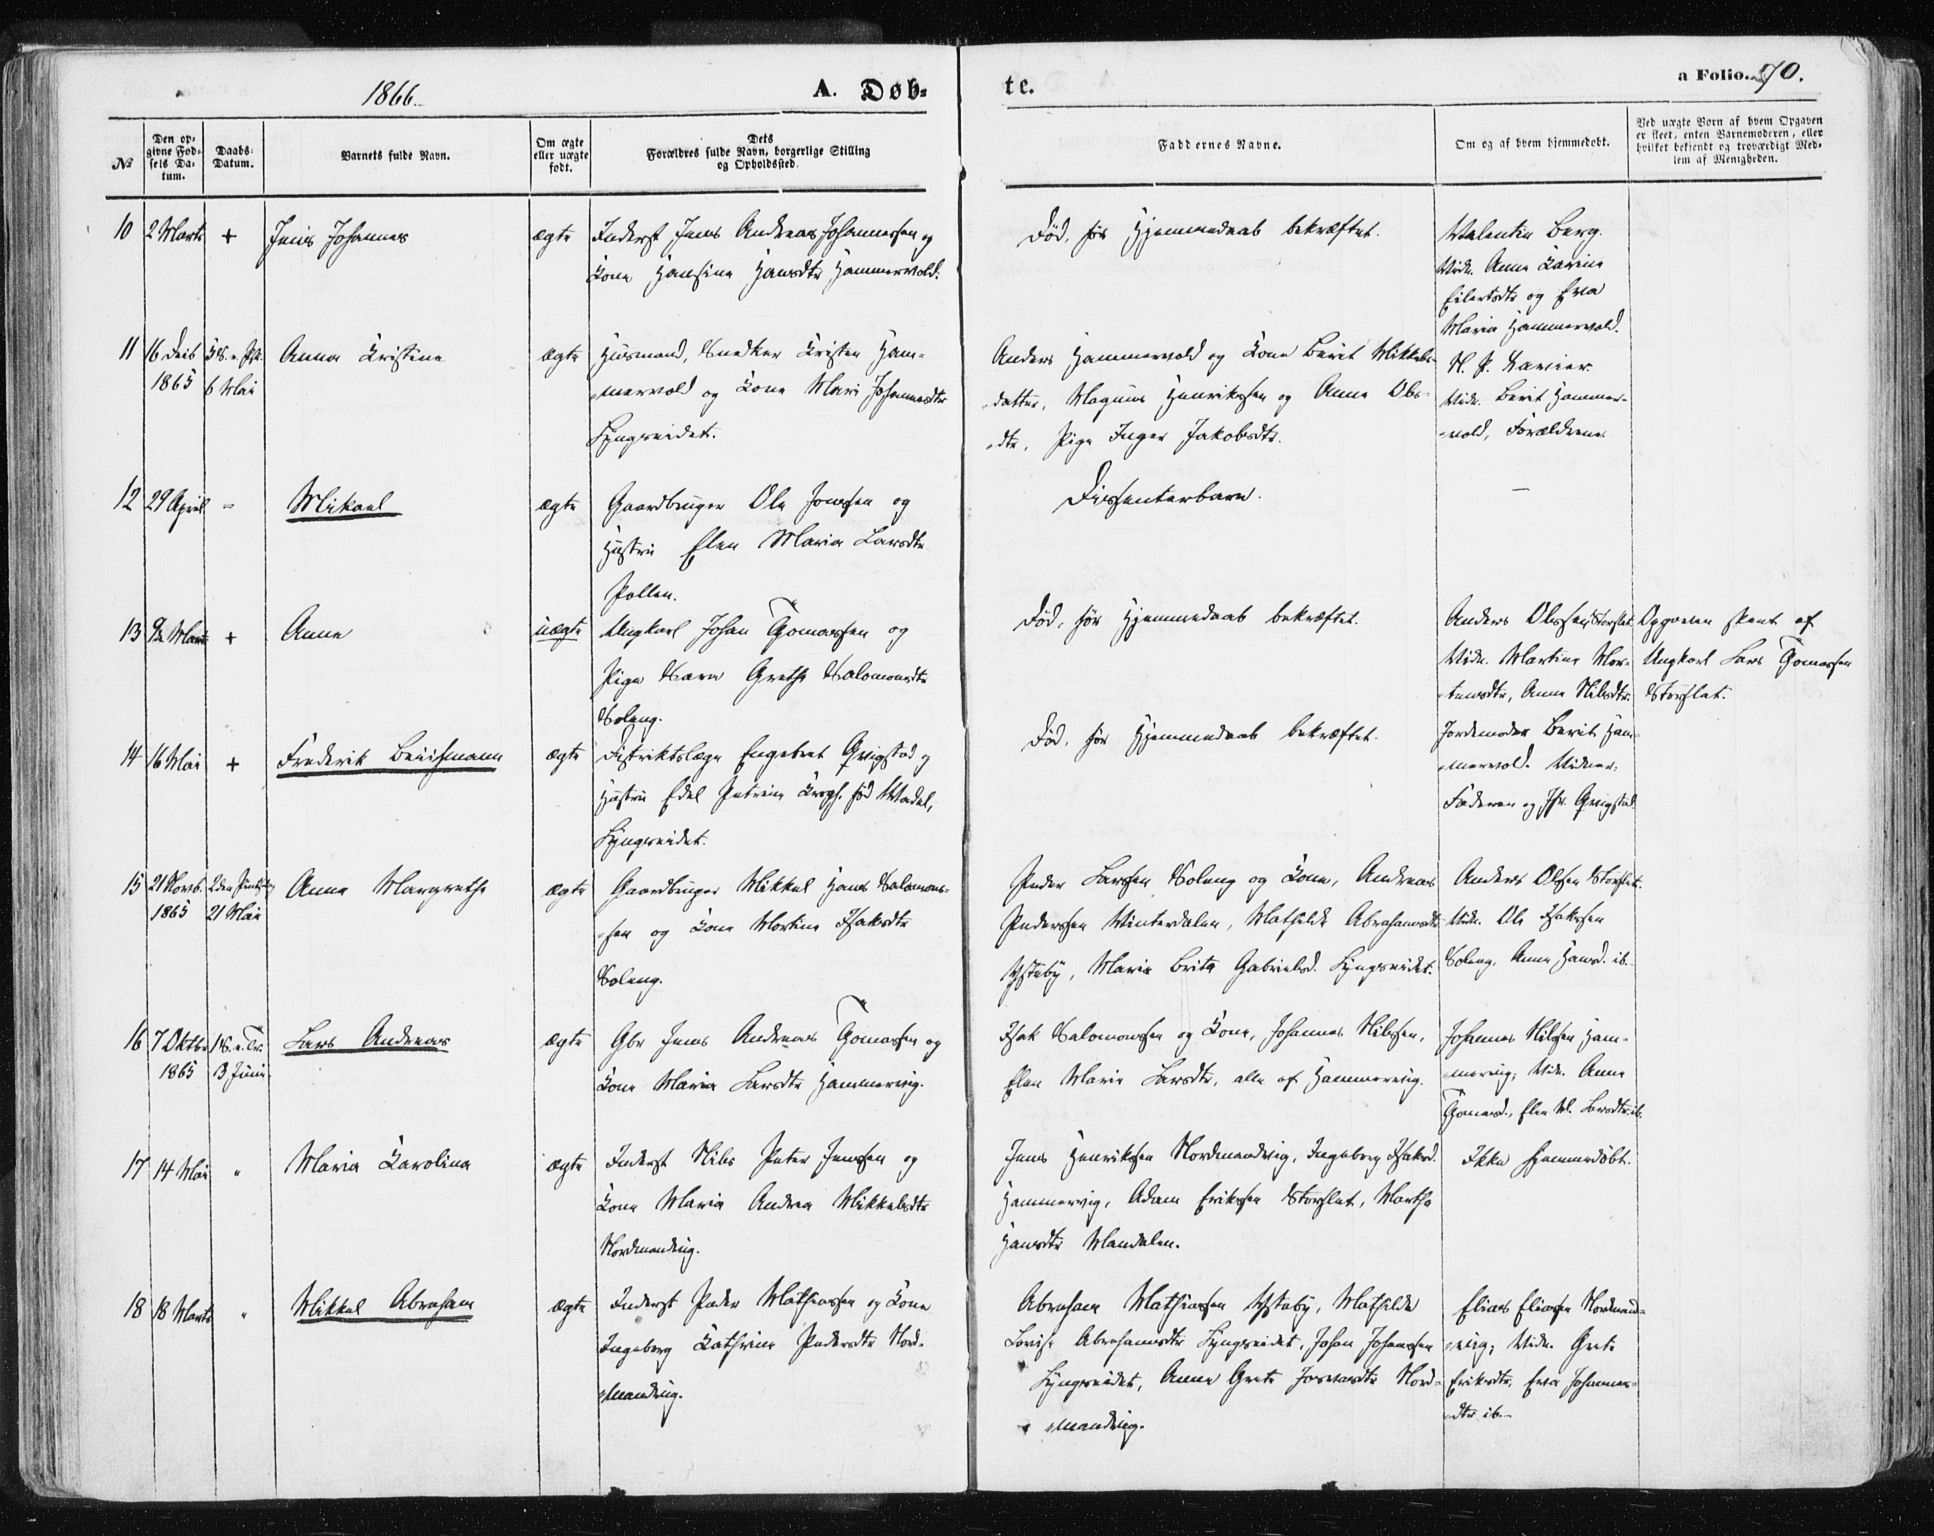 1866.
A. Døb-
te.
a Folio. 70.
№
Den op-
givne Fød-
sels Da-
tum.
Daabs-
Datum.
Barnets fulde Navn.
Om ægte
eller uægte
født.
Dets
Forældres fulde Navn, borgerlige Stilling
og Opholdssted.
Faddernes Navne.
Om og af hvem hjemmedøbt.
Ved uægte Børn af hvem Opgaven
er skeet, enten Barnemoderen, eller
hvilket bekjendt og troværdigt Med-
lem af Menigheden.
10 2 Marts + Jens Johannes ægte Inderst Jens Andreas Johannessen og
Kone Hansine Hansdtr Hammervold.
Død, før Hjemmedaab bekræftet.
Valentin Berg.
Vidn. Anne Karine
Eilertsdtr og Eva
Maria Hammervold.
11 16 Decb 1865
6 Mai
Anna Kristine ægte Huusmand, Snedker Kristen Ham-
mervold og Kone Mari Johannesdtr
Lyngseidet.
Anders Hammervold og Kone Berit Mikkels-
datter, Magnus Henriksen og Anne Ols-
dtr, Pige Inger Jakobsdtr.
Vidn. Berit Hammer-
vold, Forældrene
12 29 April - Mikael ægte Gaardbruger Ole Jonssen og
Hustru Elen Maria Larsdtr
Pollen.
Dissenterbarn. —
13 Marts + Anne uægte Ungkarl Johan Tomassen og
Pige Sara Grethe Salomonsdtr
Soleng.
Død, før Hjemmedaab bekræftet.
Anders Olssen Storslet
Vidn. Martine Mor-
tensdtr, Anne Nilsdtr.
Opgaven skeet af
Ungkarl Lars Tomassen
Storslet.
14 16 Mai + Frederik Buismann ægte Distriktslæge Engebret Qvigstad og
Hustru Edel Petrine Krogh. fød Wadel,
Lyngseidet.
Død, før Hjemmedaab bekræftet.
Jordemoder Berit Ham-
mervold. Vidner:
Faderen og Jfr. Qvigstad
15 21 Novb. 1865
2den Pintsedag
21 Mai
Anne Margrethe ægte Gaardbruger Mikkel Hans Salomons-
sen og Kone Martine Isaksdtr
Soleng.
Peder Larssen Soleng og Kone, Andreas
Pederssen Winterdalen, Mathilde Abrahamsdtr
Ysteby, Maria Brita Gabrielsd. Lyngseidet.
Anders Olssen Storslet.
Vidn. Ole Isakssen
Soleng, Anne Hansd. ib.
16 7 Oktbr 1865
1 S. e. Tr.
3 Juni
Lars Andreas ægte Gbr Jens Andreas Tomassen og
Kone Maria Larsdtr Hammervig.
Isak Salomonssen og Kone, Johannes Nilssen,
Elen Maria Larsdtr, alle af Hammervig.
Johannes Nilssen Ham-
mervig; Vidn. Anne
Tomasd., Elen M. Larsdtr ib.
17 14 Mai " Maria Karolina ægte Inderst Nils Peter Jenssen og
Kone Maria Andrea Mikkelsdtr
Nordmandvig.
Jens Henriksen Nordmandvig, Ingeborg Isaksd.
Hammervig, Adam Erikssen Storslet, Marthe
Hansdtr Mandalen.
Ikke hjemmedøbt.
18 18 Marts " Mikkel Abraham ægte Inderst Peder Mathiassen og Kone
Ingeborg Kathrine Pedersdtr Nord-
mandvig.
Abraham Mathiassen Ysteby, Mathilde
Lovise Abrahamsdtr Lyngseidet, Johan Johanssen
Lyngseidet, Anne Grete Josvasdtr Nord-
mandvig.
Elias Eliassen Nordmand-
vig; Vidn. Grete
Eriksdtr, Eva Johannes-
dtr ib.